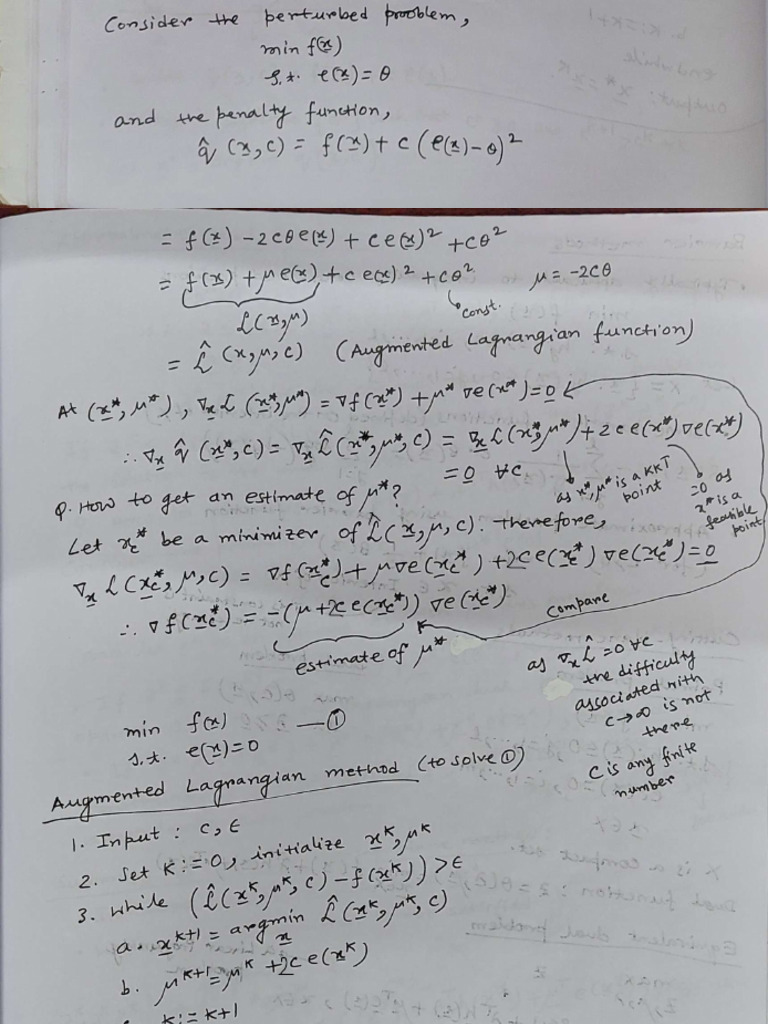 Consider the perturbed problem,
min f(x)
s.t. e(x) = θ
and the penalty function,
q̂ (x, c) = f(x) + c (e(x) − θ)²
= f(x) − 2cθe(x) + ce(x)² + cθ²
= f(x) + μe(x) + ce(x)² + cθ² μ = −2cθ
L(x,μ) const.
= L̂ (x, μ, c) (Augmented Lagrangian function)
At (x*, μ*), ∇x L (x*, μ*) = ∇f(x*) + μ* ∇e(x*) = 0
∴ ∇x q̂ (x*, c) = ∇x L̂(x*, μ*, c) = ∇x L(x*, μ*) + 2ce(x*)∇e(x*)
= 0 ∀c
as x*, μ* is a KKT point
= 0 as x* is a feasible point
Q. How to get an estimate of μ*?
Let xc* be a minimizer of L̂(x, μ, c). Therefore,
∇x L (xc*, μ, c) = ∇f(xc*) + μ∇e(xc*) + 2ce(xc*) ∇e(xc*) = 0
∴ ∇f(xc*) = −(μ+2ce(xc*)) ∇e(xc*)
compare
estimate of μ*
as ∇x L̂ = 0 ∀c
the difficulty
associated with
c→∞ is not
there
C is any finite
number
min f(x) —①
s.t. e(x) = 0
Augmented Lagrangian method (to solve ①)
1. Input : c, ϵ
2. Set K := 0, initialize xᴷ, μᴷ
3. while (L̂(xᴷ, μᴷ, c) − f(xᴷ)) > ϵ
a. xᴷ⁺¹ = argmin x L̂ (xᴷ, μᴷ, c)
b. μᴷ⁺¹ = μᴷ + 2ce(xᴷ)
K := K+1